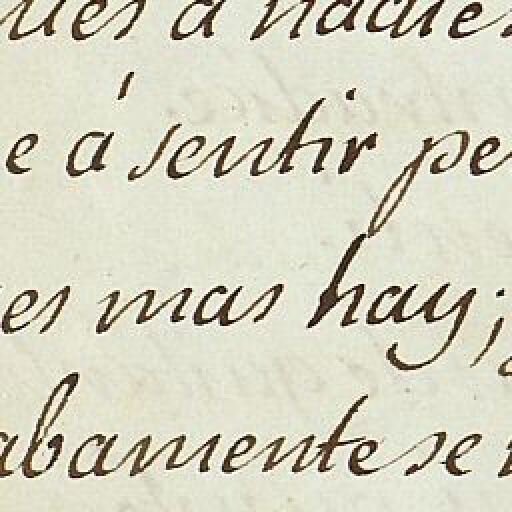 ues a nadie
e á sentir pe
es mas hay;
abamente se